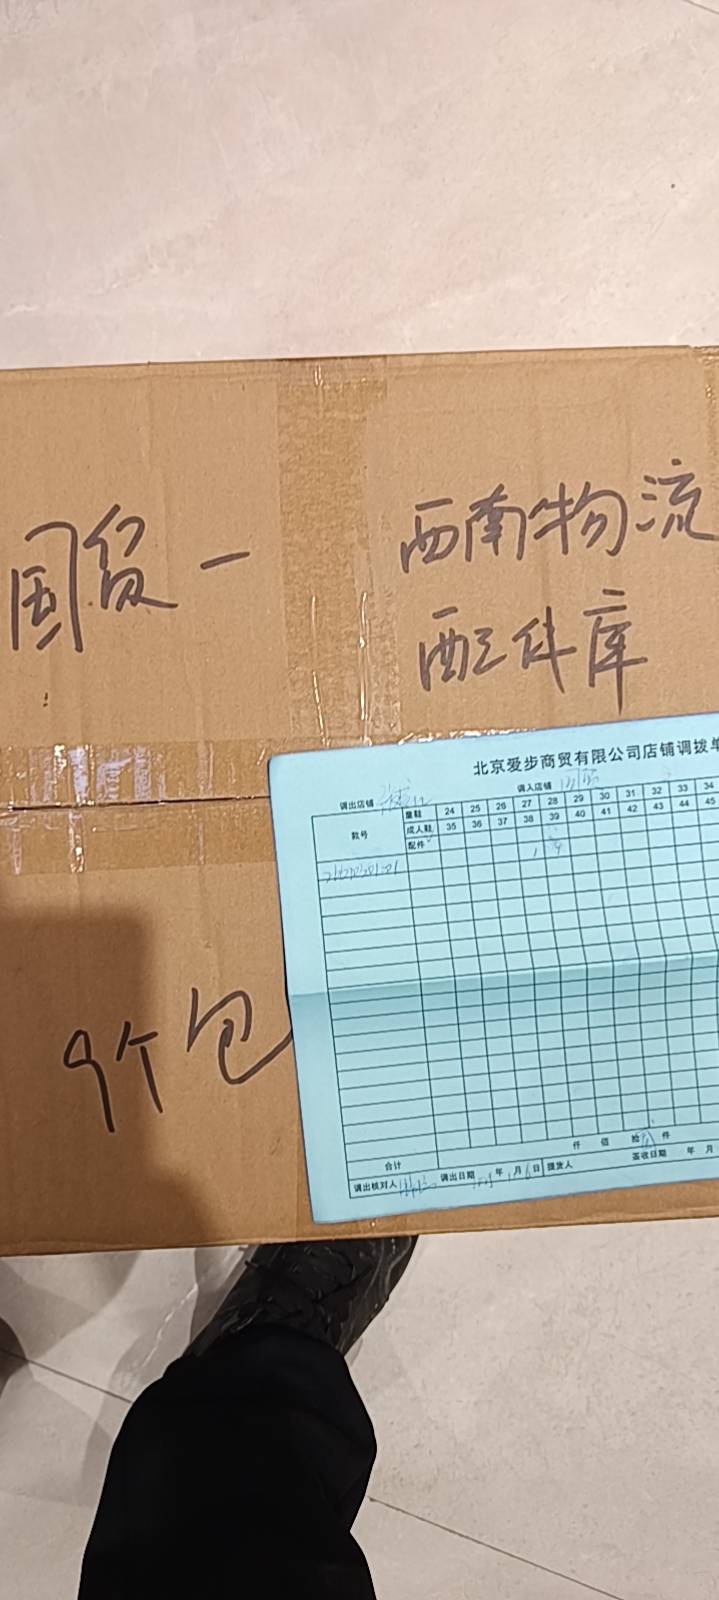 国贸一
西南物流
配件库
9个包
北京爱步商贸有限公司店铺调拨单
调出店铺 调入店铺
款号
童鞋 24 25 26 27 28 29 30 31 32 33 34
成人鞋 35 36 37 38 39 40 41 42 43 44 45
配件
合计 仟 佰 拾 件
调出核对人 调出日期 年 月 日 提货人 签收日期 年 月